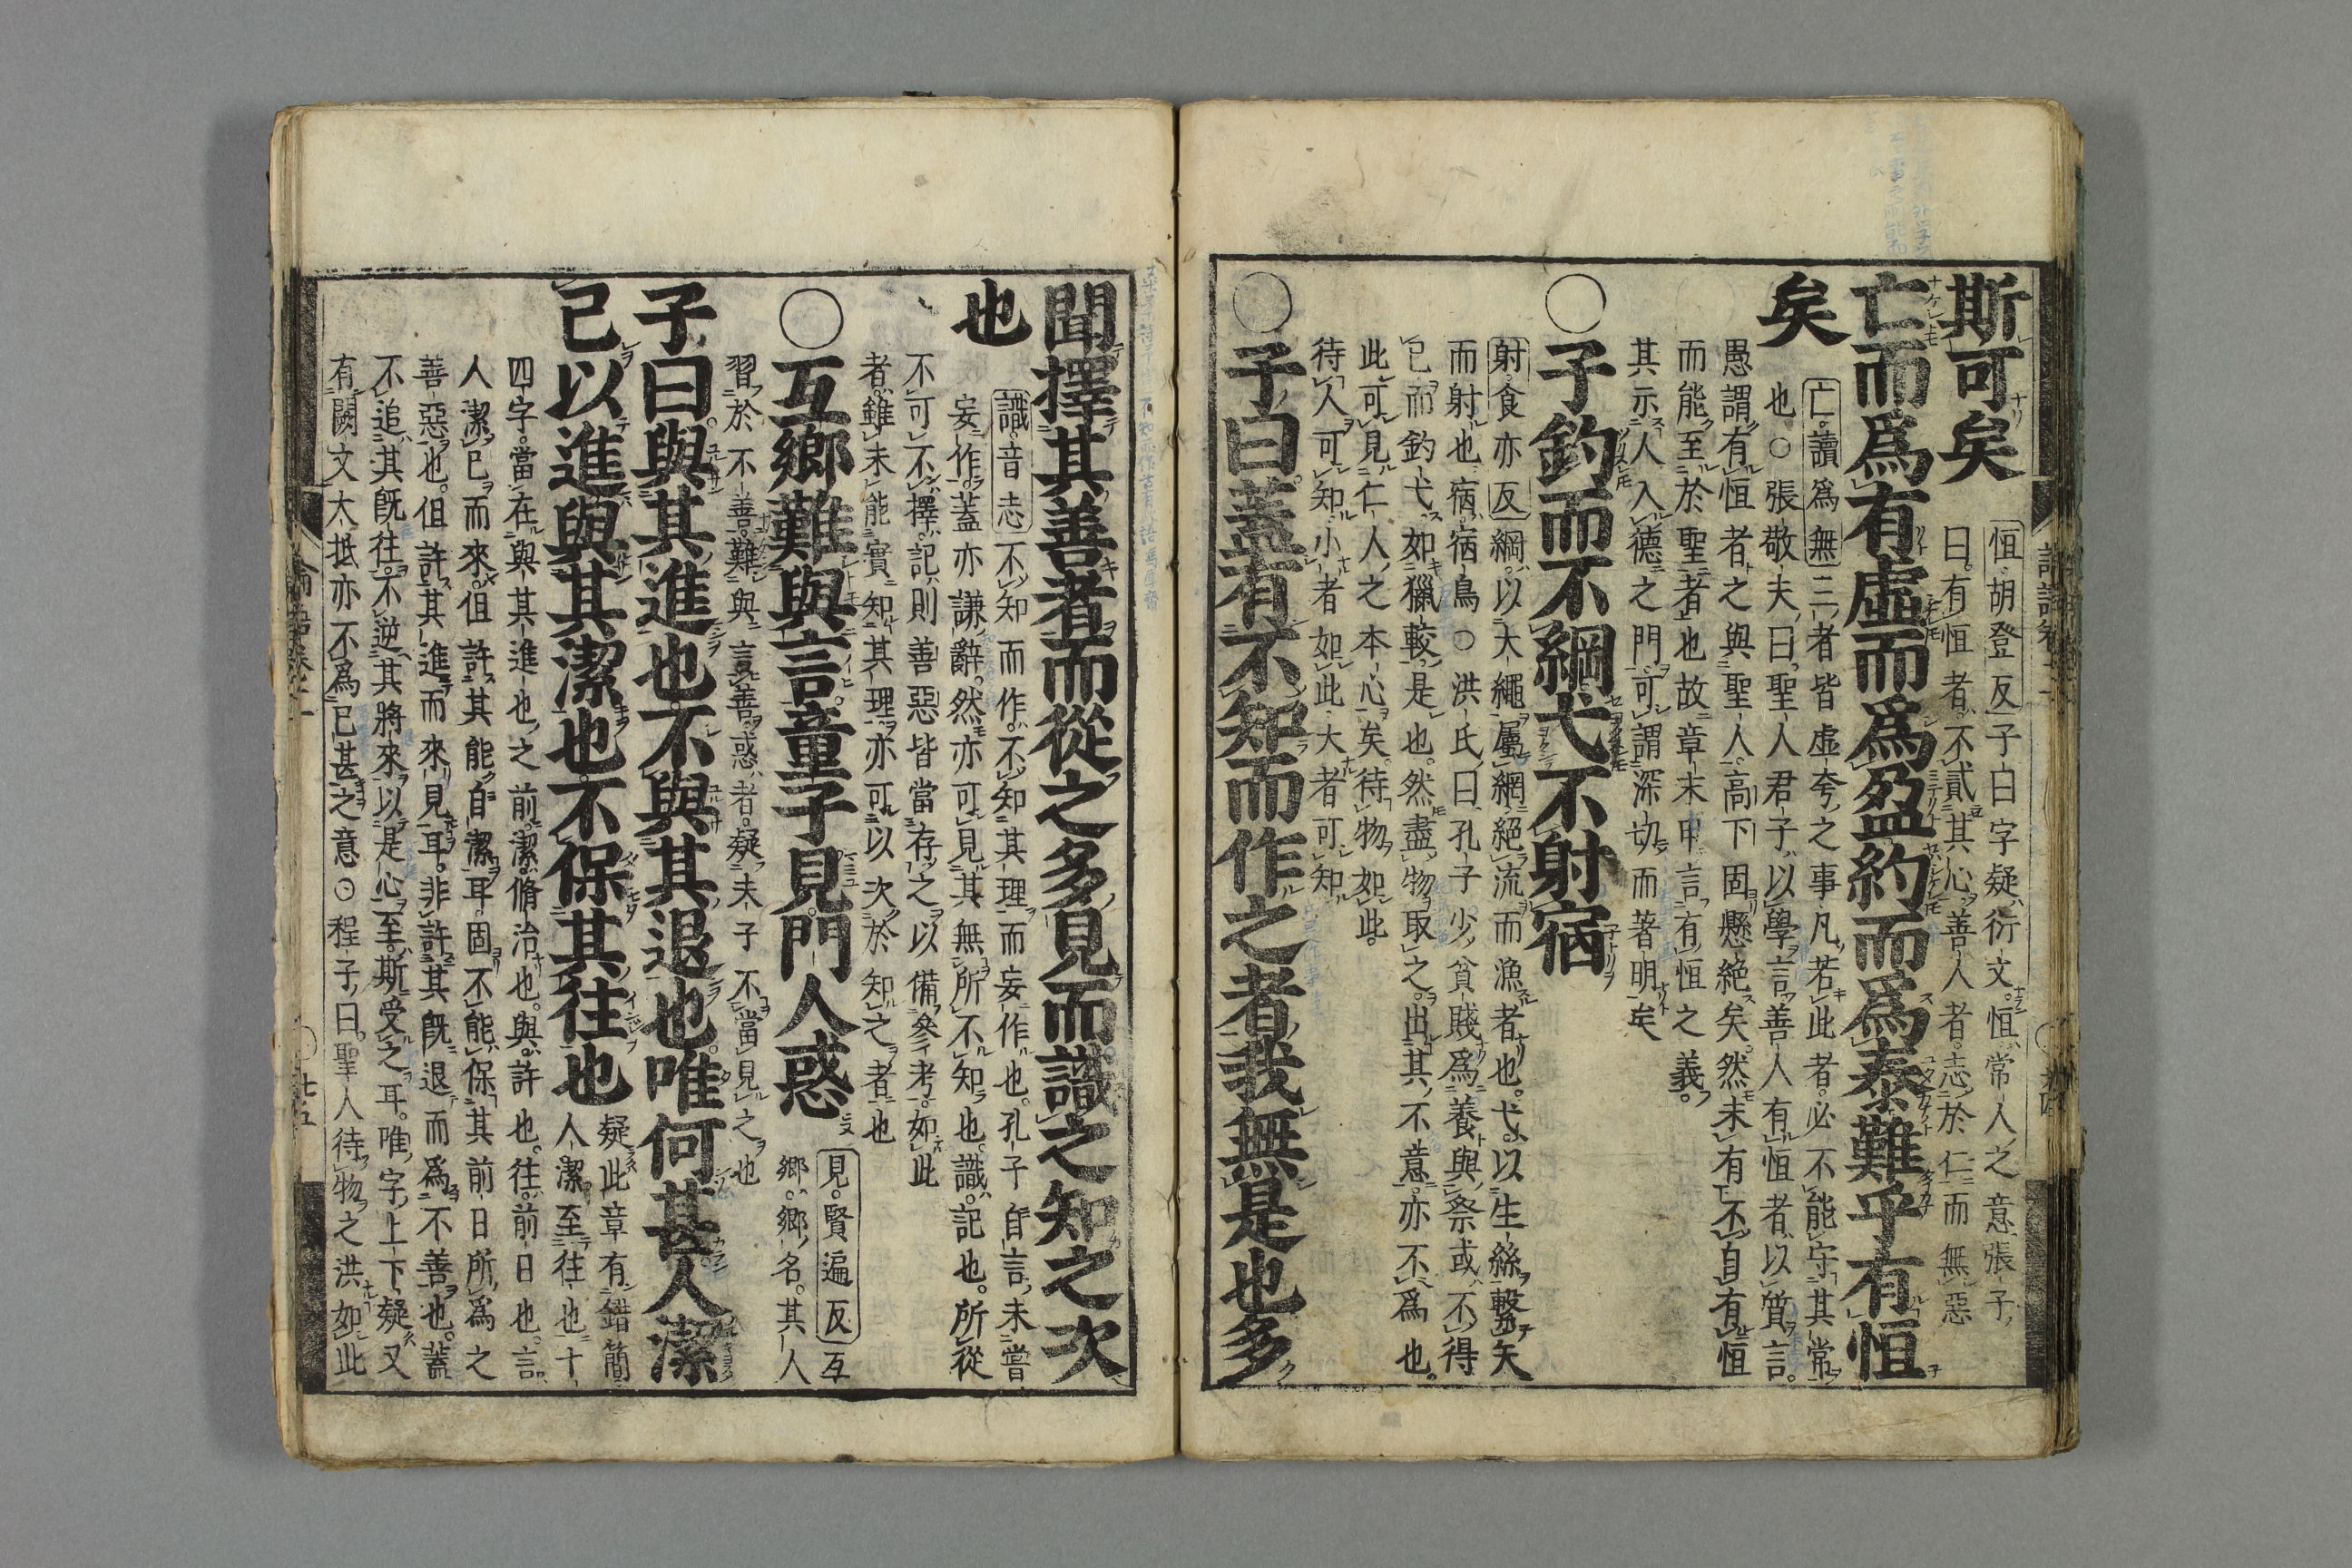 斯可矣
恒胡登反子曰字疑衍文。恒常人之意張子
曰。有恒者不貳其心善人者。志於仁而無惡
亡而爲有虛而爲盈約而爲泰難乎有恒
矣
亡。讀爲無三者皆虛夸之事凡若此者。必不能守其常
也○張敬夫曰聖人君子以學言善人有恒者以質言。
愚謂有恒者之與聖人。高下固懸絕矣然未有不自有恒
而能至於聖者也故章末申言有恒之義。
其示人入德之門可謂深切而著明矣
○子釣而不綱弋不射宿
射。食亦反綱。以大繩屬網絕流而漁者也。弋。以生絲繫矢
而射也宿。宿鳥○洪氏曰孔子。少貧賤爲養與祭或不得
已而釣弋如獵較是也。然盡物取之。出其不意。亦不爲也。
此可見仁人之本心矣。待物如此。
待人可知小者如此大者可知
○子曰。蓋有不知而作之者我無是也多
聞擇其善者而從之多見而識之知之次
也
識。音志不知而作。不知其理而妄作也。孔子自言未嘗
妄作。蓋亦謙辭。然亦可見其無所不知也。識記也。所從
不可不擇。記則善惡皆當存之以備參考。如此
者雖未能實知其理亦可以次於知之者也
○互鄉難與言童子見門人惑
見。賢遍反互
鄉。鄉名。其人
習於不善。難與言善惑者。疑夫子不當見之也
子曰。與其進也不與其退也唯何甚。人潔
己以進與其潔也不保其往也
疑此章有錯簡
人潔至往也十
四字。當在與其進也之前。潔。脩治也。與。許也。往前日也。言
人潔己而來。但許其能自潔耳。固不能保其前日所爲之
善惡也。但許其進而來見耳。非許其旣退而爲不善也。蓋
不追其旣往。不逆其將來以是心至。斯受之耳。唯字上下疑又
有闕文大抵亦不爲已甚之意○程子曰。聖人待物之洪如此